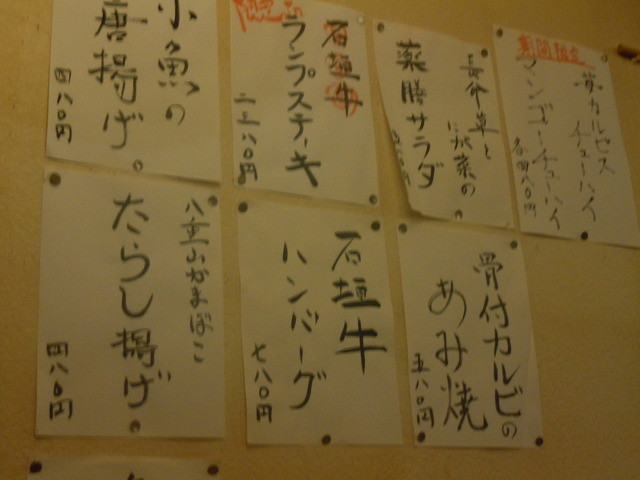 期間限定
夢カルピス
チューハイ
マンゴーチューハイ
各四八〇円
長命草と
薬膳サラダ
限定
石垣牛
ランプステーキ
二三八〇円
小魚の
唐揚げ
四八〇円
骨付カルビの
あみ焼
五八〇円
石垣牛
ハンバーグ
七八〇円
八重山かまぼこ
たらし揚げ
四八〇円